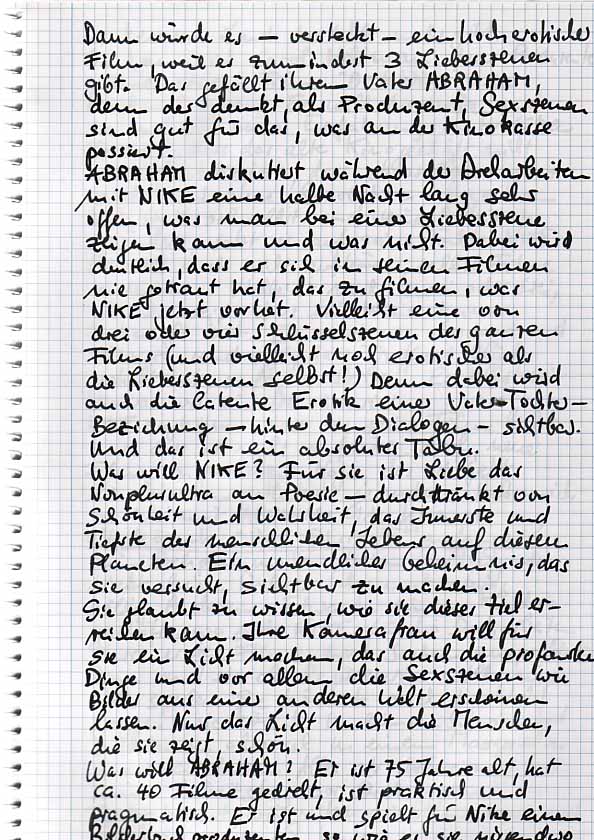 Dann würde es – versteckt – ein hocherotischer
Film, weil es zumindest 3 Liebesszenen
gibt. Das gefällt ihrem Vater ABRAHAM,
denn der denkt, als Produzent, Sexszenen
sind gut für das, was an der Kinokasse
passiert.
ABRAHAM diskutiert während der Dreharbeiten
mit NIKE eine halbe Nacht lang sehr
offen, was man bei einer Liebesszene
zeigen kann und was nicht. Dabei wird
deutlich, dass er sich in seinen Filmen
nie getraut hat, das zu filmen, was
NIKE jetzt vorhat. Vielleicht eine von
drei oder vier Schlüsselszenen des ganzen
Films (und vielleicht noch erotischer als
die Liebesszenen selbst!) Denn dabei wird
auch die latente Erotik einer Vater-Tochter-
Beziehung – hinter den Dialogen – sichtbar.
Und das ist ein absolutes Tabu.
Was will NIKE? Für sie ist Liebe das
Nonplusultra an Poesie – durchtränkt von
Schönheit und Wahrheit, das Innerste und
Tiefste des menschlichen Lebens auf diesem
Planeten. Ein unendliches Geheimnis, das
sie versucht, sichtbar zu machen.
Sie glaubt zu wissen, wie sie dieses Ziel er-
reichen kann. Ihre Kamerafrau will für
sie ein Licht machen, das auch die profansten
Dinge und vor allem die Sexszenen wie
Bilder aus einer anderen Welt erscheinen
lassen. Nur das Licht macht die Menschen,
die sie zeigt, schön.
Was will ABRAHAM? Er ist 75 Jahre alt, hat
ca. 40 Filme gedreht, ist praktisch und
pragmatisch. Er ist und spielt für Nike einen
so wie er sie